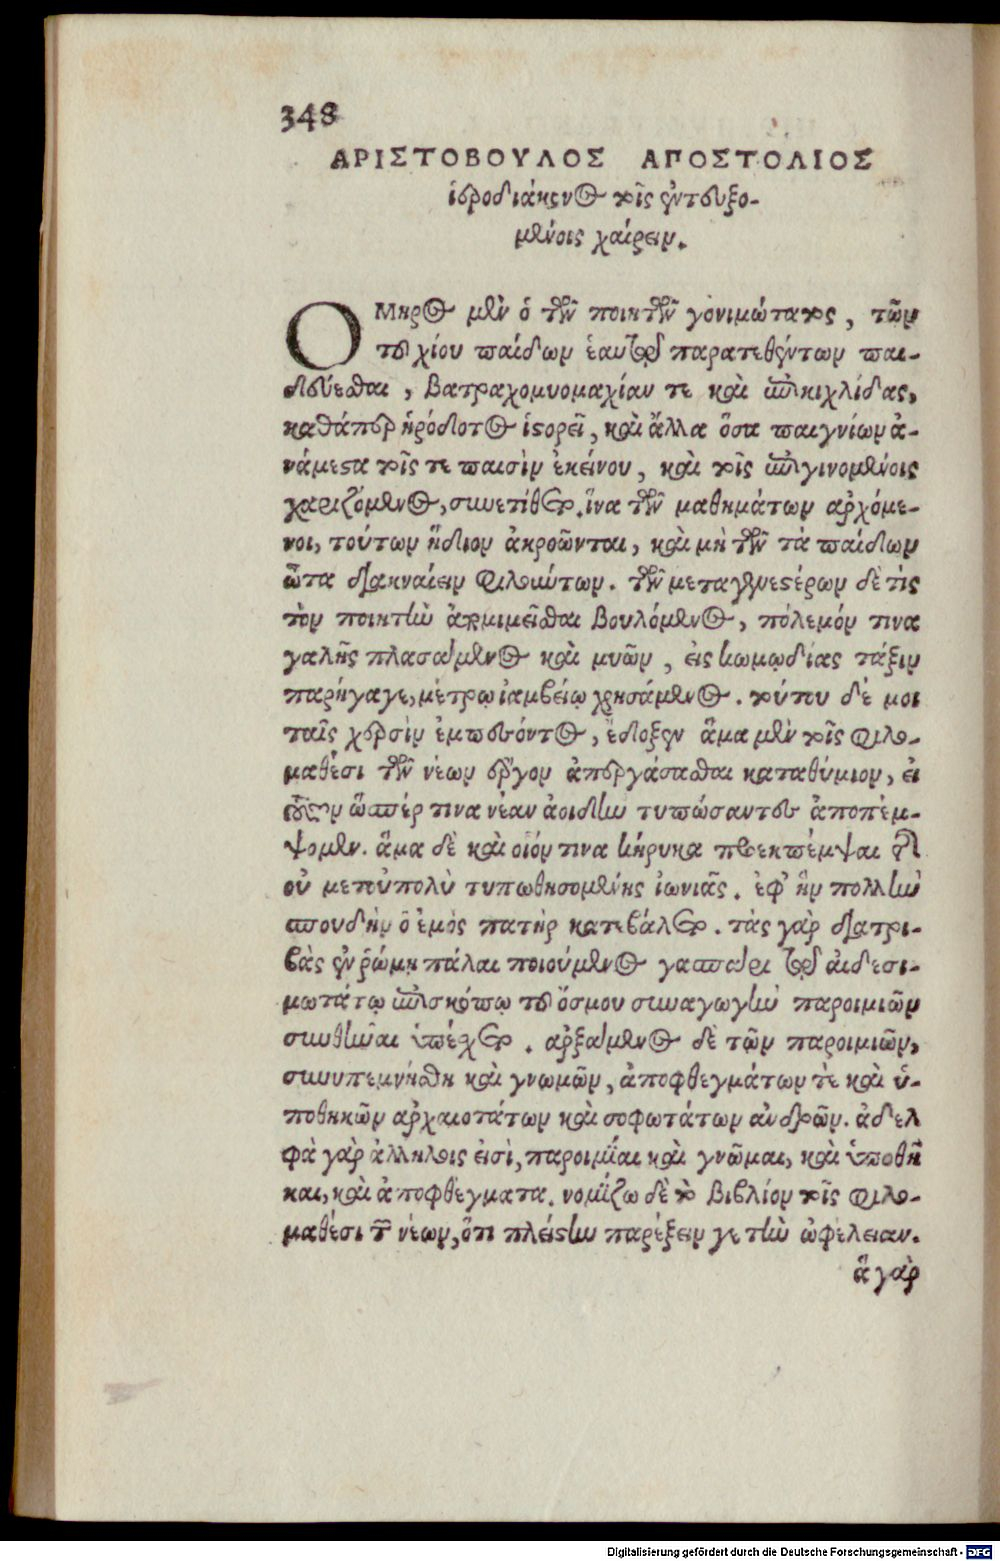 348
ΑΡΙΣΤΟΒΟΥΛΟΣ ΑΠΟΣΤΟΛΙΟΣ
ἱεροδιάκονος τοῖς ἐντευξο-
μένοις χαίρειν.
ΟΜηρος μὲν ὁ τῶν ποιητῶν γονιμώτατος, τῶν
τοῦ χίου παίδων ἑαυτῷ παρατεθέντων παι-
δεύεσθαι, βατραχομυομαχίαν τε καὶ ἐπικιχλίδας,
καθάπερ ἡρόδοτος ἱστορεῖ, καὶ ἄλλα ὅσα παιγνίων ἀ-
νάμεστα τοῖς τε παισὶν ἐκείνου, καὶ τοῖς ἐπιγινομένοις
χαριζόμενος, συνετίθει. ἵνα τῶν μαθημάτων ἀρχόμε-
νοι, τούτων ἥδιον ἀκροῶνται, καὶ μὴ τῶν τὰ παίδων
ὦτα διακναίειν φιλούντων. τῶν μεταγενεστέρων δὲ τὶς
τὸν ποιητὴν ἀπομιμεῖσθαι βουλόμενος, πόλεμόν τινα
γαλῆς πλασάμενος καὶ μυῶν, εἰς κωμωδίας τάξιν
παρήγαγε, μέτρῳ ἰαμβείῳ χρησάμενος. τούτου δέ μοι
ταῖς χερσὶν ἐμπεσόντος, ἔδοξεν ἅμα μὲν τοῖς φιλο-
μαθέσι τῶν νέων ἔργον ἀπεργάσασθαι καταθύμιον, εἰ
ὥσπέρ τινα νέαν ἀοιδὴν τυπώσαντες ἀποπέμ-
ψομεν. ἅμα δὲ καὶ οἷόν τινα κήρυκα προεκπέμψαι τῆς
οὐ μετὰπολὺ τυπωθησομένης ἰωνιᾶς. ἐφ' ἣν πολλὴν
σπουδὴν ὁ ἐμὸς πατὴρ κατεβάλετο. τὰς γὰρ διατρι-
βὰς ἐν ῥώμῃ πάλαι ποιούμενος γασπάρι τῷ αἰδεσι-
μωτάτῳ ἐπισκόπῳ τοῦ ὄσμου συναγωγὴν παροιμιῶν
συνθεῖναι ὑπέσχετο. ἀρξάμενος δὲ τῶν παροιμιῶν,
συνυπεμνήσθη καὶ γνωμῶν, ἀποφθεγμάτων τὲ καὶ ὑ-
ποθηκῶν ἀρχαιοτάτων καὶ σοφωτάτων ἀνδρῶν. ἀδελ
φὰ γὰρ ἀλλήλοις εἰσὶ, παροιμίαι καὶ γνῶμαι, καὶ ὑποθῆ
και, καὶ ἀποφθέγματα. νομίζω δὲ τὸ βιβλίον τοῖς φιλο-
μαθέσι τῶν νέων, ὅτι πλείστην παρέξειν γε τὴν ὠφέλειαν.
ἃ γὰρ
Digitalisierung gefördert durch die Deutsche Forschungsgemeinschaft - DFG